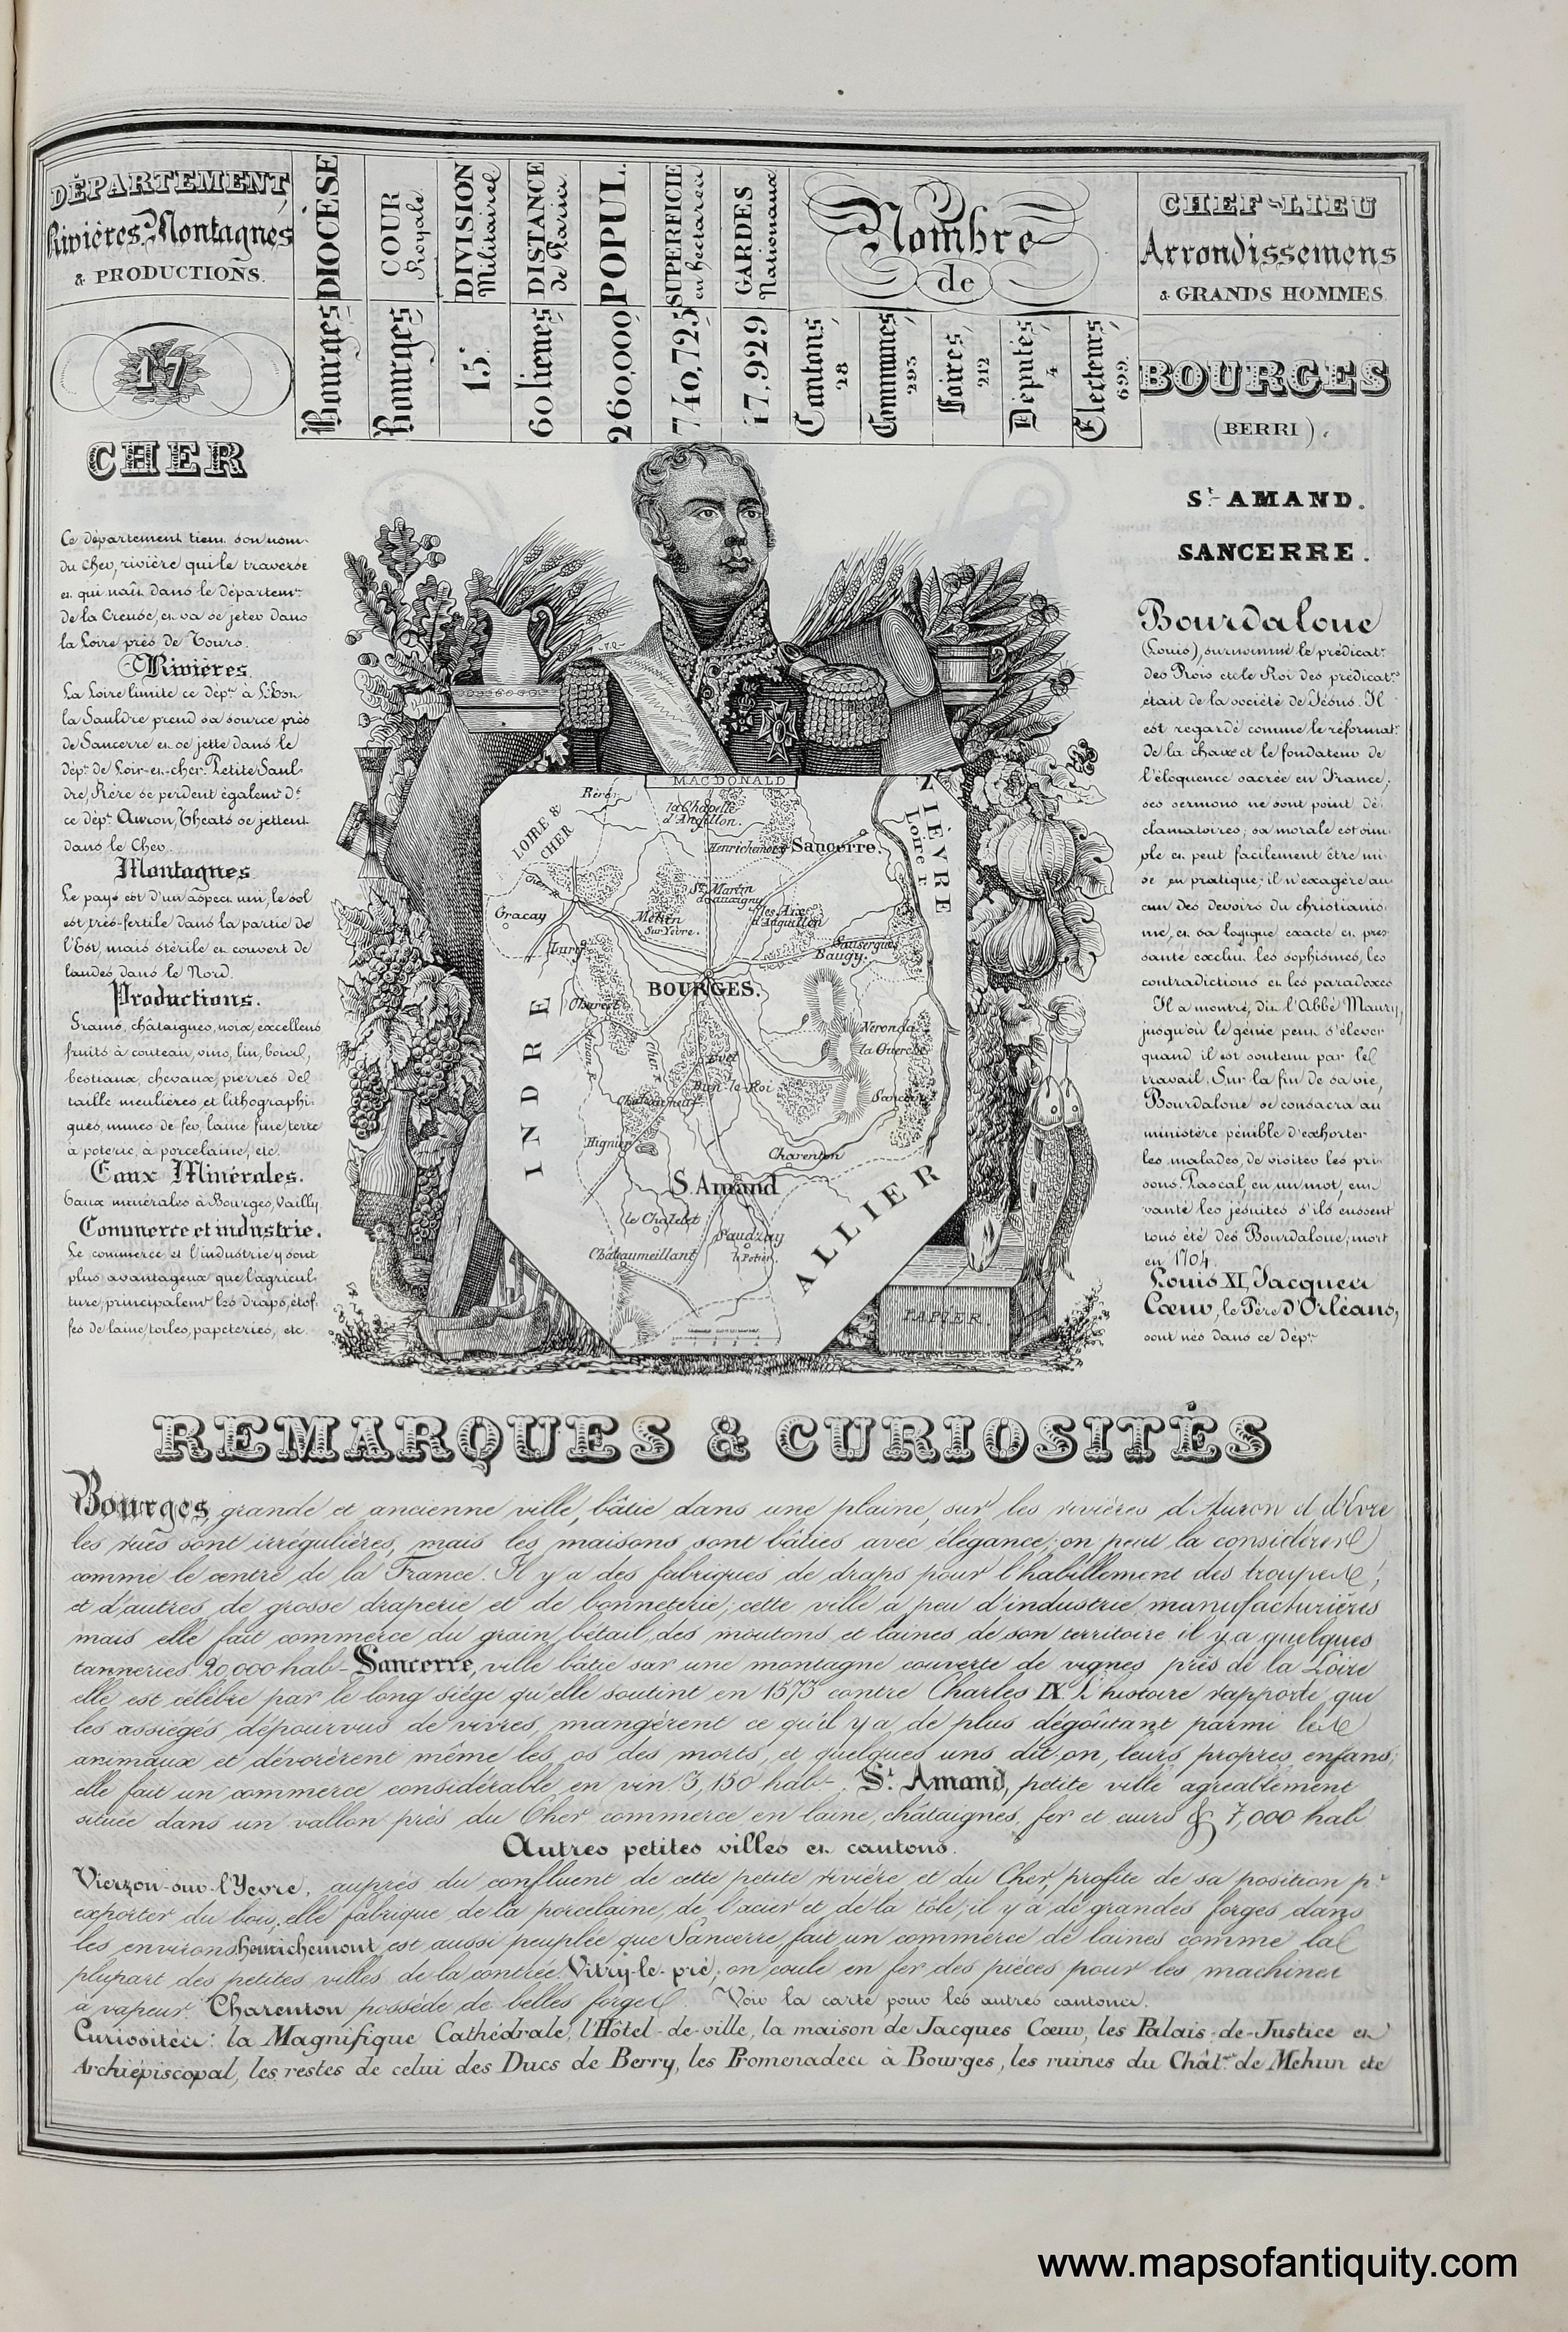 DÉPARTEMENT,
Rivières, Montagnes
& PRODUCTIONS.
DIOCÈSE
COUR
Royale
DIVISION
Militaire
DISTANCE
de Paris
POPUL.
SUPERFICIE
en hectares
GARDES
Nationaux
Nombre
de
CHEF-LIEU
Arrondissemens
& GRANDS HOMMES.
17
Bourges
Bourges
15e
60 lieues
260,000
740,725
47,929
Cantons
28
Communes
293
Foires
212
Députés
4
Electeurs
699.
BOURGES
(BERRI).
CHER
St. AMAND.
SANCERRE.
Ce département tient son nom
du Cher, rivière qui le traverse
et qui naît dans le départemt
de la Creuse, et va se jeter dans
la Loire près de Tours.
Rivières.
La Loire limite ce dépt à l'Est
la Sauldre prend sa source près
de Sancerre et se jette dans le
dépt de Loir-et-cher. Petite Saul-
dre, Rère se perdent égalemt ds
ce dépt. Auron, Théats se jettent
dans le Cher.
Montagnes.
Le pays est d'un aspect uni, le sol
est très-fertile dans la partie de
l'Est, mais stérile et couvert de
landes, dans le Nord.
Productions.
Grains, châtaignes, noix, excellens
fruits à couteau, vins, lin, bois,
bestiaux, chevaux, pierres de
taille meulières, et lithographi-
ques, mines de fer, laine fine, terre
à poterie, à porcelaine, etc.
Eaux Minérales.
Eaux minérales à Bourges, Vailly.
Commerce et industrie.
Le commerce et l'industrie y sont
plus avantageux que l'agricul-
ture, principalemt les draps, étof-
fes de laine, toiles, papeteries, etc.
MACDONALD
LOIRE &
CHER
NIÈVRE
Loire r.
Rère r.
la Chapelle
d'Angillon.
Henrichemont
Sancerre.
Cher r.
Gracay
St Martin
d'auxigny
Mehun
Sur Yèvre.
les Aix
d'Anguillon
Lury
Sansergues
Baugy.
BOURGES.
Charost
Neronde
la Guerche
INDRE
Cher r.
Levet
Dun-le-Roi
Châteauneuf
Sancoins
Lignier
Charenton
S. Amand
le Chatelet
Saudzay
Châteaumeillant
ALLIER
PAPIER.
Bourdaloue
(Louis), surnommé le prédicatr
des Rois et le Roi des prédicatrs
était de la société de Jésus. Il
est regardé comme le réformatr
de la chaire et le fondateur de
l'éloquence sacrée en France;
ses sermons ne sont point dé-
clamatoires; sa morale est sim-
ple et peut facilement être mi-
se en pratique; il n'exagère au-
cun des devoirs du christianis-
me, et sa logique exacte et pres-
sante exclut les sophismes, les
contradictions et les paradoxes
Il a montré, dit l'Abbé Maury,
jusqu'où le génie peut s'élever
quand il est soutenu par le
travail. Sur la fin de sa vie,
Bourdaloue se consacra au
ministère pénible d'exhorter
les malades, de visiter les pri-
sons. Pascal, en un mot, eut
vanté les jésuites s'ils eussent
tous été des Bourdaloue; mort
en 1704.
Louis XI, Jacques
Cœur, le Père d'Orléans,
sont nés dans ce Dépt
REMARQUES & CURIOSITÉS
Bourges, grande et ancienne ville, bâtie dans une plaine, sur les rivières d'Auron et d'Evre
les rues sont irrégulières, mais les maisons sont bâties avec élégance; on peut la considérer
comme le centre de la France. Il y a des fabriques de draps pour l'habillement des troupes,
et d'autres de grosse draperie et de bonneterie; cette ville a peu d'industrie manufacturières
mais elle fait commerce du grain, bétail, des moutons et laines de son territoire il y a quelques
tanneries 20,000 hab- Sancerre, ville bâtie sur une montagne couverte de vignes près de la Loire
elle est célèbre par le long siége qu'elle soutint en 1573 contre Charles IX. L'histoire rapporte que
les assiégés dépourvus de vivres, mangèrent ce qu'il y a de plus dégoûtant parmi les
animaux et dévorèrent même les os des morts, et quelques uns dit-on, leurs propres enfans;
elle fait un commerce considérable en vin. 3,150 hab-. St. Amand, petite ville agréablement
située dans un vallon près du Cher commerce en laine, châtaignes, fer et cuirs & 7,000 hab
Autres petites villes et cantons.
Vierzon-sur-l'Yevre, auprès du confluent de cette petite rivière et du Cher, profite de sa position pr
exporter du bois, elle fabrique de la porcelaine, de l'acier et de la tôle; il y a de grandes forges dans
les environs henrichemont est aussi peuplée que Sancerre, fait un commerce de laines comme la
plupart des petites villes de la contrée. Vitry-le-pré, on coule en fer des pièces pour les machines
à vapeur. Charenton possède de belles forges. Voir la carte pour les autres cantons.
Curiosités: la Magnifique Cathédrale, l'Hôtel-de-ville, la maison de Jacques Cœur, les Palais-de-Justice et
Archiépiscopal, les restes de celui des Ducs de Berry, les Promenades à Bourges, les ruines du Chât. de Mehun etc
www.mapsofantiquity.com